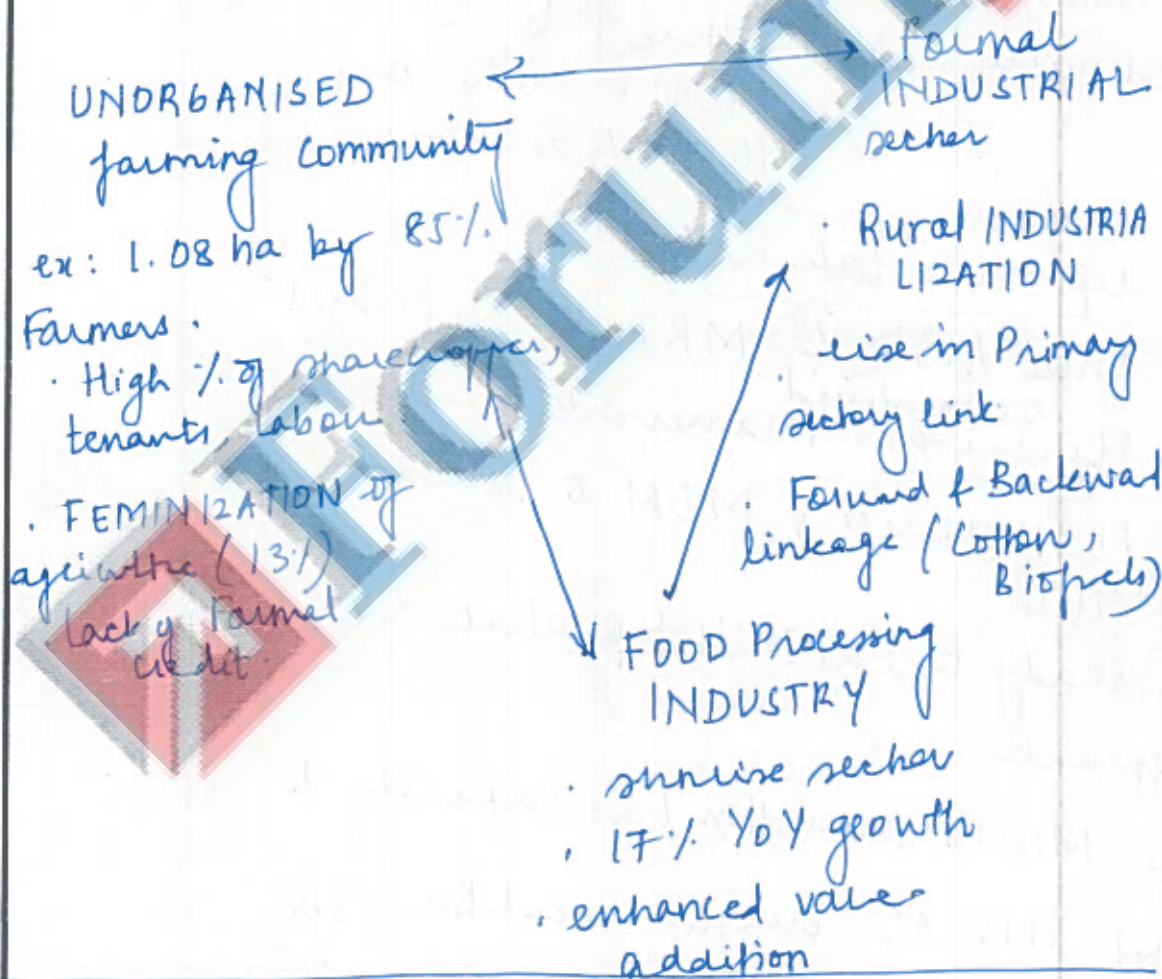 UNORGANISED
farming Community
ex: 1.08 ha by 85%
Farmers.
· High % of sharecropper,
tenants, labour
· FEMINIZATION of
agriculture (13%)
· lack of Formal
credit.
Formal
INDUSTRIAL
sector
· Rural INDUSTRIA
LIZATION
· rise in Primary
sectory link
· Forward & Backward
linkage (Cotton,
Biofuels)
FOOD Processing
INDUSTRY
· sunrise sector
· 17% YoY growth
· enhanced value
addition
Forum